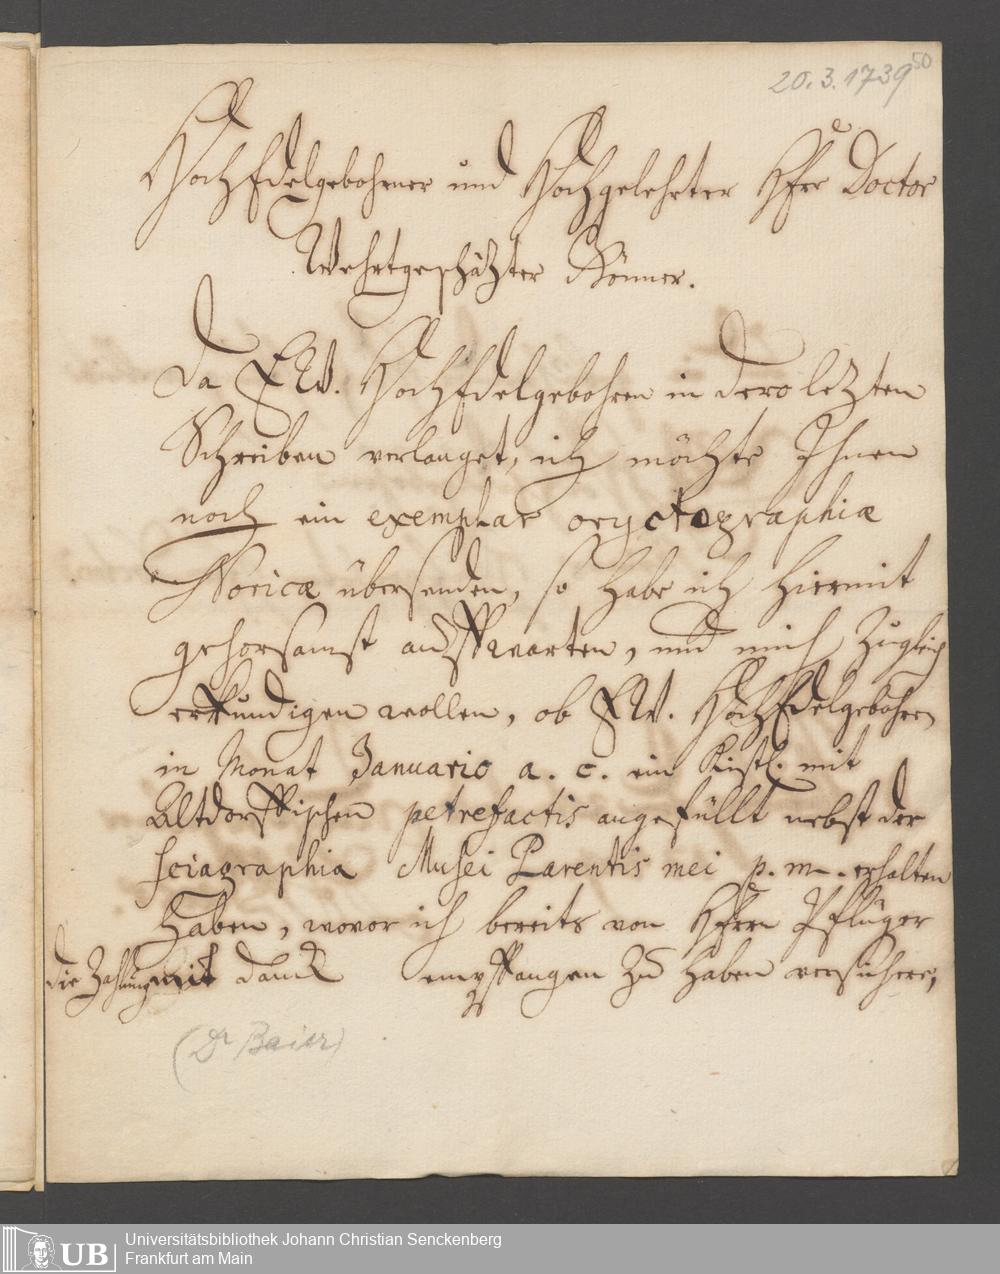 20.3.1739
50
HochEdelgebohrner und Hochgelehrter Herr Doctor
Wehrtgeschätzter Gönner.
Da EW. HochEdelgebohren in dero letzten
Schreiben verlanget, ich möchte Ihnen
noch ein exemplar oryctographiæ
Noricæ übersenden, so habe ich hiermit
gehorsamst auffwarten, und mich zugleich
erkundigen wollen, ob EW. HochEdelgebohren
in Monat Januario a. c. ein Kistl. mit
Altdorffischen petrefactis angefüllt nebst der
sciagraphia Musei Parentis mei p. m. erhalten
haben, wovor ich bereits von Herrn Pflüger
die Zahlung mit danck empfangen zu haben versichere,
(Dr Baier)
UB
Universitätsbibliothek Johann Christian Senckenberg
Frankfurt am Main